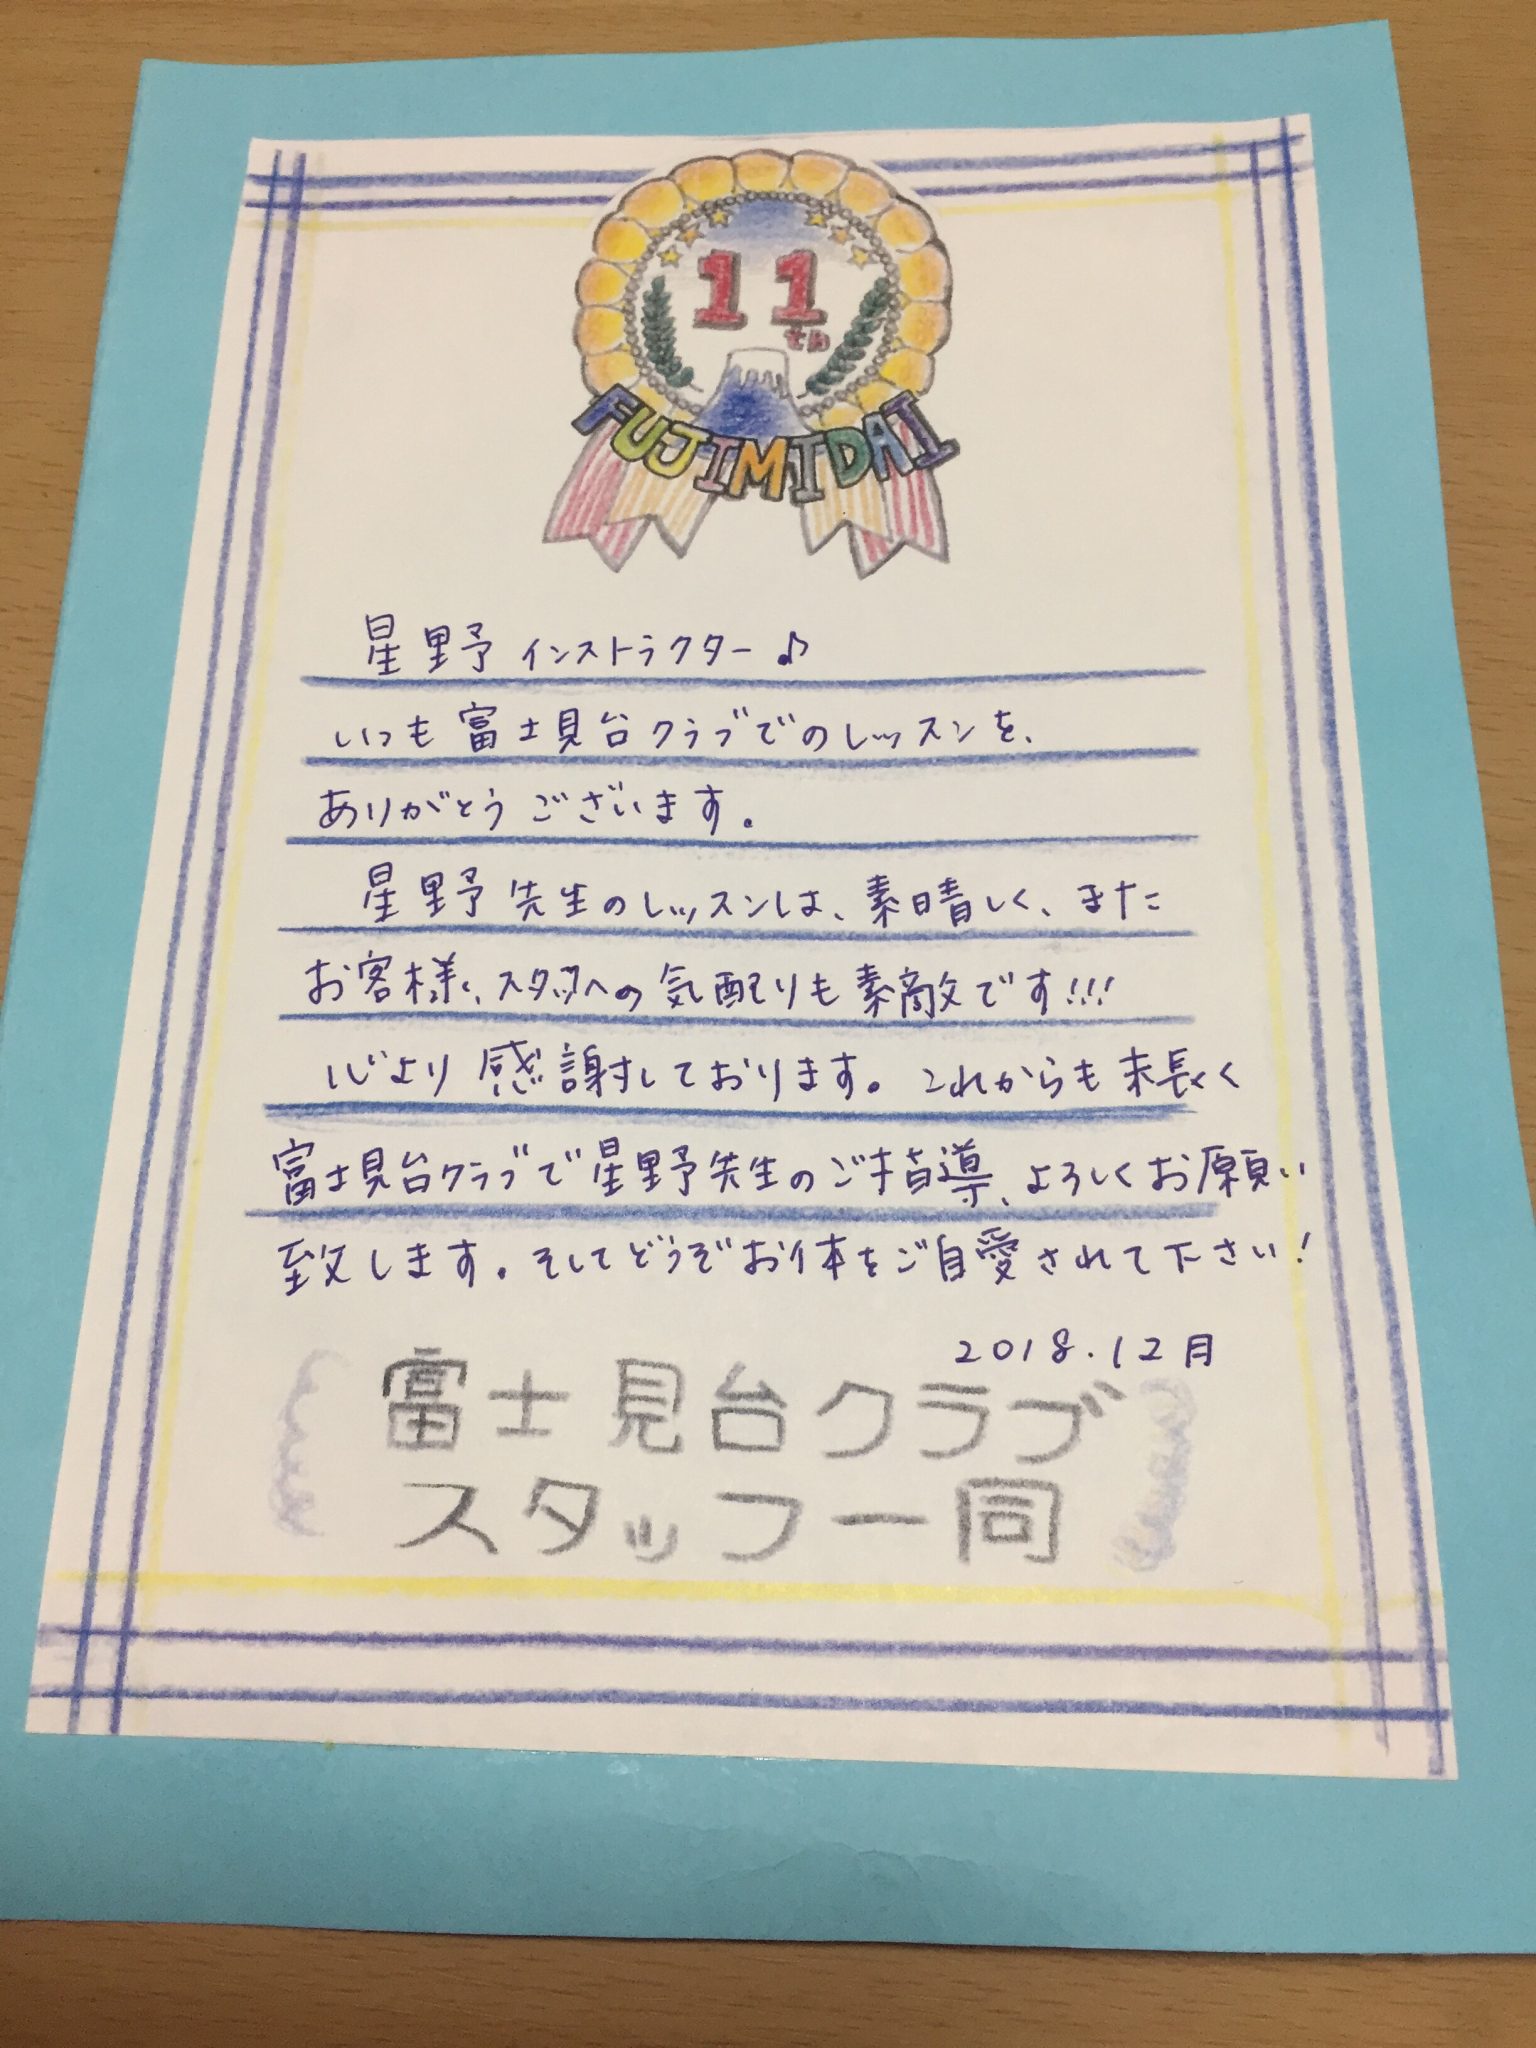 11th
FUJIMIDAI
星野インストラクター♪
いつも富士見台クラブでのレッスンを、
ありがとうございます。
星野先生のレッスンは、素晴しく、また
お客様、スタッフへの気配りも素敵です!!!
心より感謝しております。これからも末長く
富士見台クラブで星野先生のご指導、よろしくお願い
致します。そしてどうぞお体をご自愛されて下さい!
2018.12月
富士見台クラブ
スタッフ一同